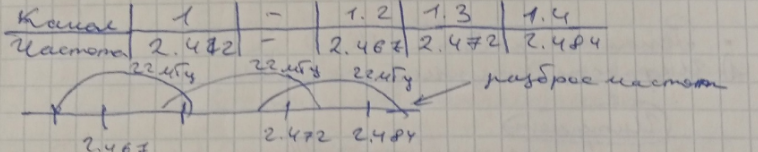 Канал 1 - 1.2 1.3 1.4
Частота 2.412 - 2.467 2.472 2.484
22 мГц 22 мГц 22 мГц разброс частот
2.467 2.472 2.484